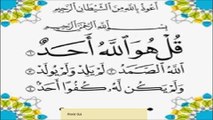 أعوذ بالله من الشيطان الرجيم
بسم الله الرحمن الرحيم
قُلْ هُوَ ٱللَّهُ أَحَدٌ
ٱللَّهُ ٱلصَّمَدُ لَمْ يَلِدْ وَلَمْ يُولَدْ
وَلَمْ يَكُن لَّهُۥ كُفُوًا أَحَدٌ